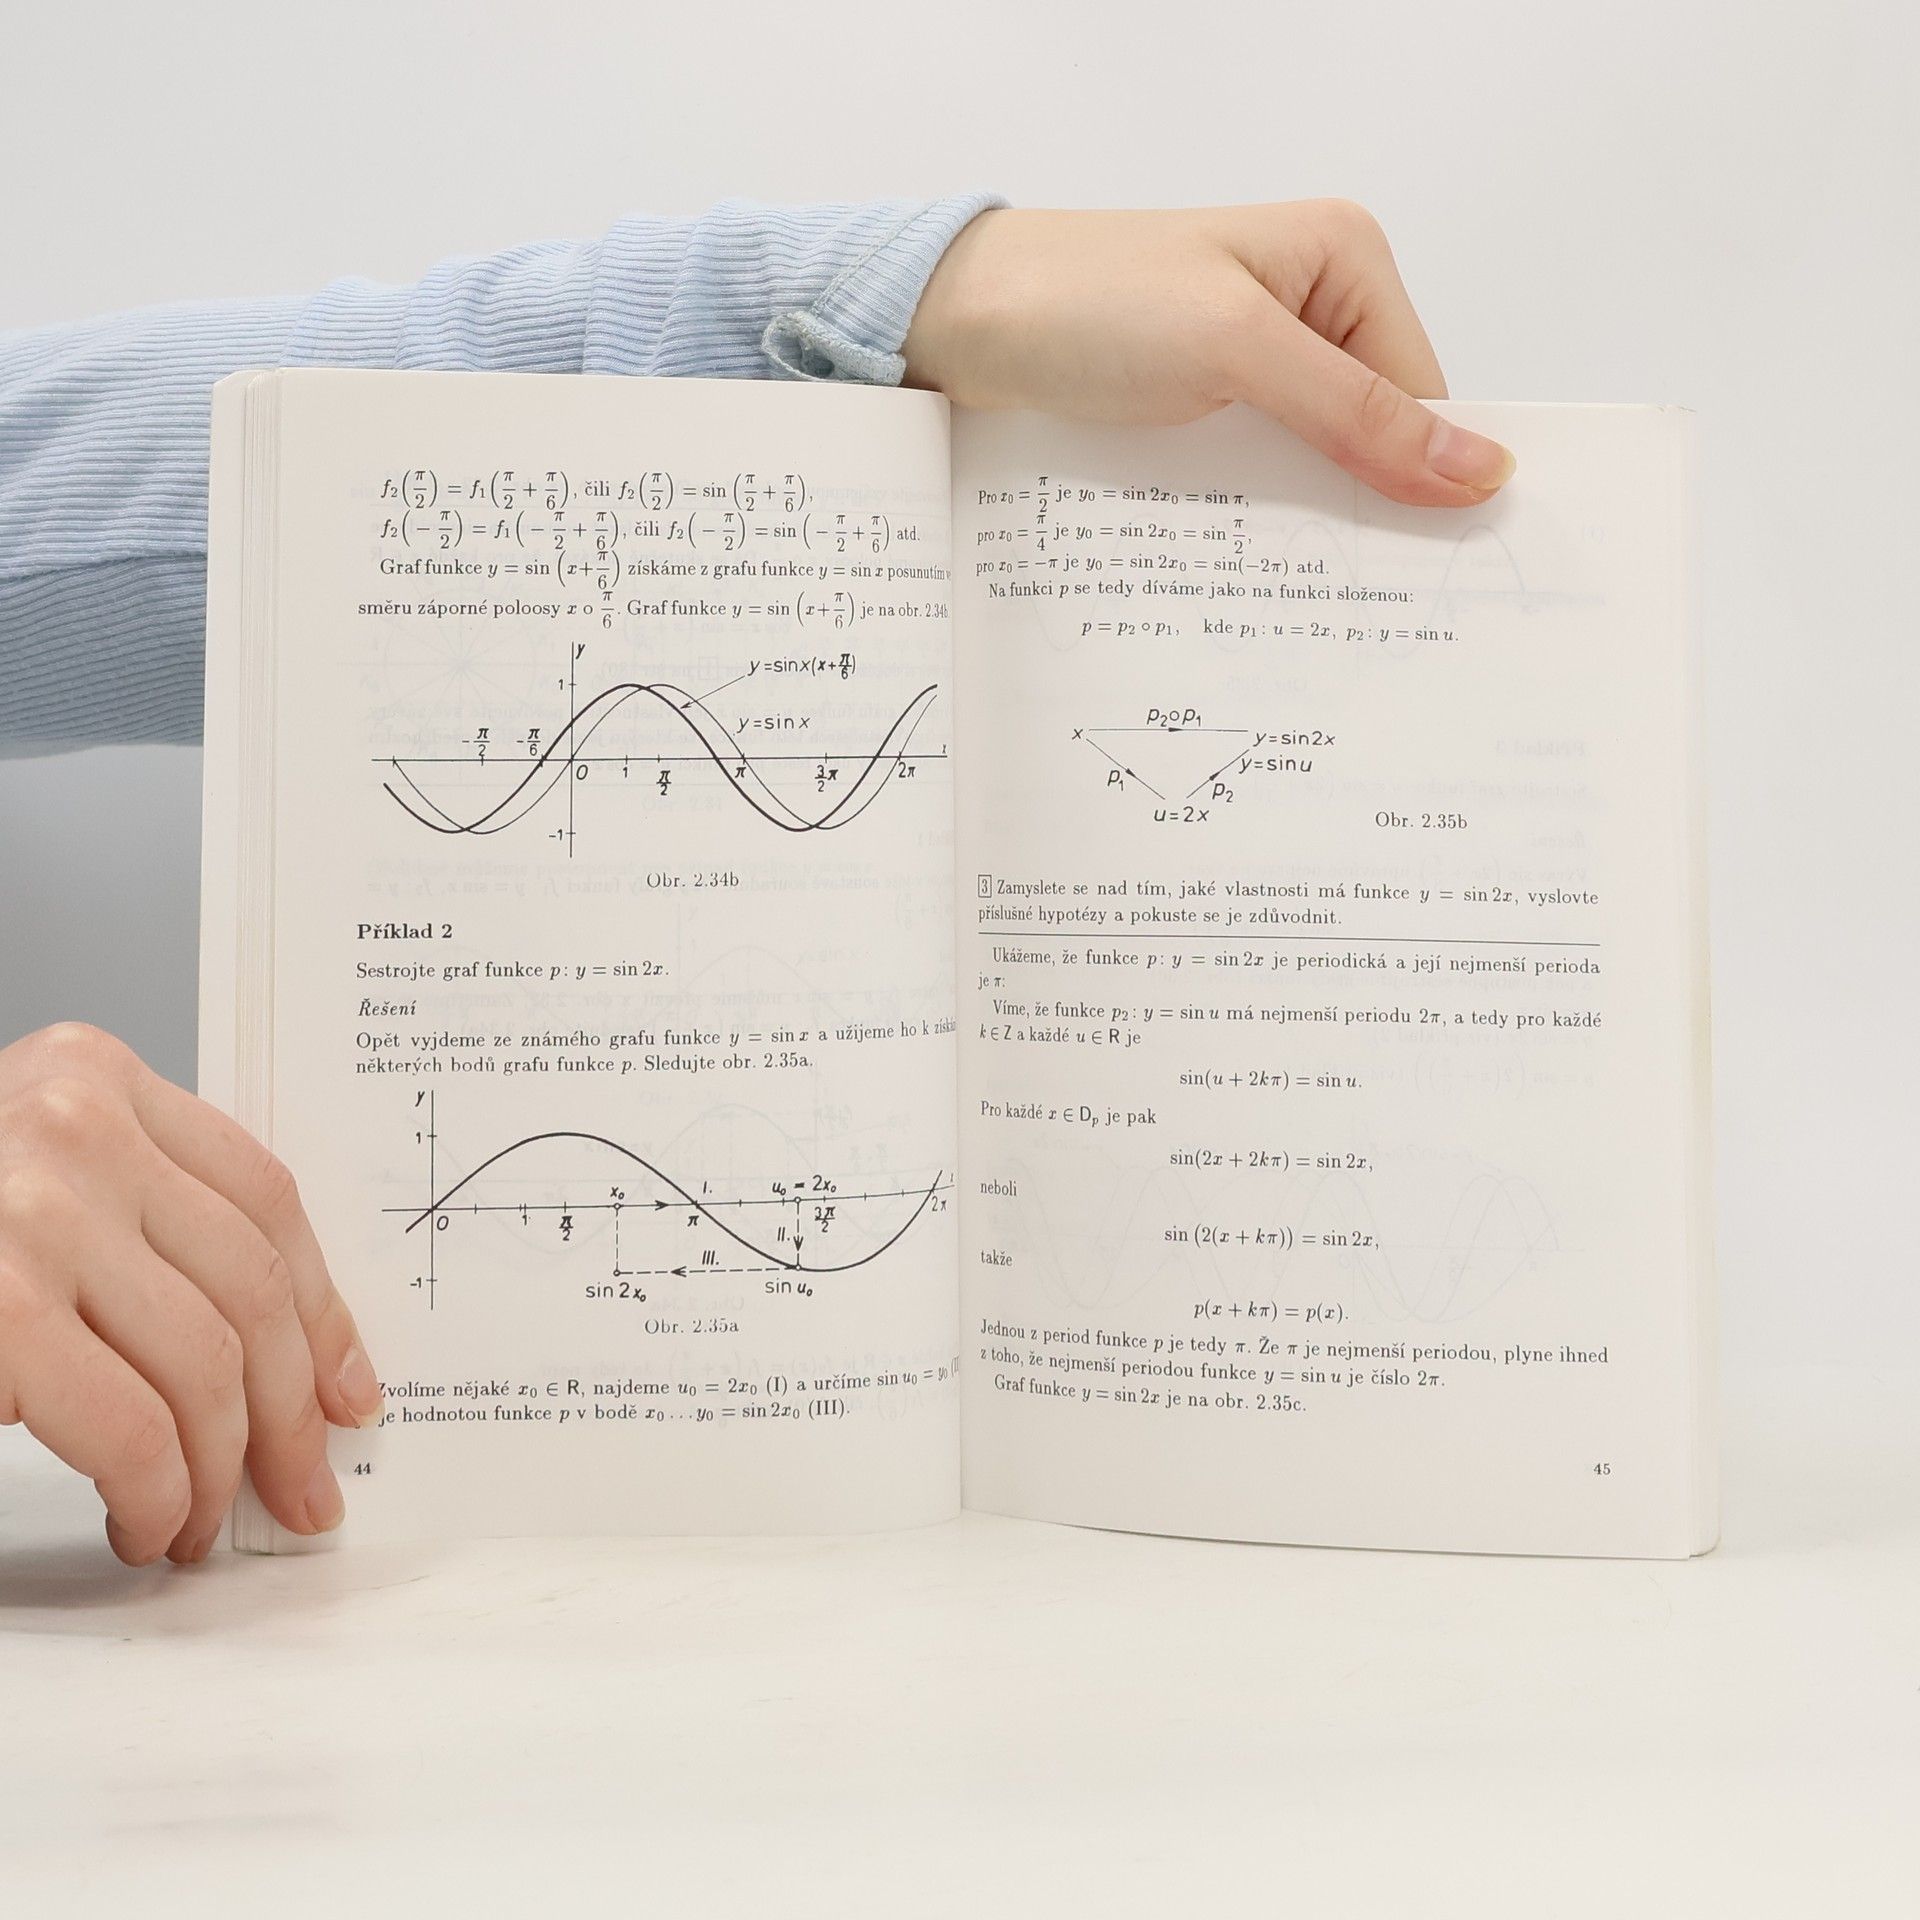 f₂(π/2) = f₁(π/2 + π/6), čili f₂(π/2) = sin (π/2 + π/6),
f₂(− π/2) = f₁(− π/2 + π/6), čili f₂(− π/2) = sin (− π/2 + π/6) atd.
Graf funkce y = sin (x+π/6) získáme z grafu funkce y = sin x posunutím
směru záporné poloosy x o π/6. Graf funkce y = sin (x+π/6) je na obr. 2.34b
y
y=sinx(x+π/6)
1
y=sinx
-π/2 -π/6 0 1 π/2 π 3/2π 2π x
-1
Obr. 2.34b
Příklad 2
Sestrojte graf funkce p: y = sin 2x.
Řešení
Opět vyjdeme ze známého grafu funkce y = sin x a užijeme ho k
některých bodů grafu funkce p. Sledujte obr. 2.35a.
y
1
x₀ I. u₀ = 2x₀
0 1 π/2 π 3π/2 2π
II.
III.
-1
sin 2x₀ sin u₀
Obr. 2.35a
Zvolíme nějaké x₀ ∈ R, najdeme u₀ = 2x₀ (I) a určíme sin u₀ = y₀
je hodnotou funkce p v bodě x₀ ... y₀ = sin 2x₀ (III).
44
Pro x₀ = π/2 je y₀ = sin 2x₀ = sin π,
pro x₀ = π/4 je y₀ = sin 2x₀ = sin π/2,
pro x₀ = −π je y₀ = sin 2x₀ = sin(−2π) atd.
Na funkci p se tedy díváme jako na funkci složenou:
p = p₂ ∘ p₁, kde p₁: u = 2x, p₂: y = sin u.
p₂∘p₁
x y=sin2x
y=sinu
p₁ p₂
u=2x
Obr. 2.35b
3 Zamyslete se nad tím, jaké vlastnosti má funkce y = sin 2x, vyslovte
příslušné hypotézy a pokuste se je zdůvodnit.
Ukážeme, že funkce p: y = sin 2x je periodická a její nejmenší perioda
je π:
Víme, že funkce p₂: y = sin u má nejmenší periodu 2π, a tedy pro každé
k ∈ Z a každé u ∈ R je
sin(u + 2kπ) = sin u.
Pro každé x ∈ Dₚ je pak
sin(2x + 2kπ) = sin 2x,
neboli
sin (2(x + kπ)) = sin 2x,
takže
p(x + kπ) = p(x).
Jednou z period funkce p je tedy π. Že π je nejmenší periodou, plyne ihned
z toho, že nejmenší periodou funkce y = sin u je číslo 2π.
Graf funkce y = sin 2x je na obr. 2.35c.
45